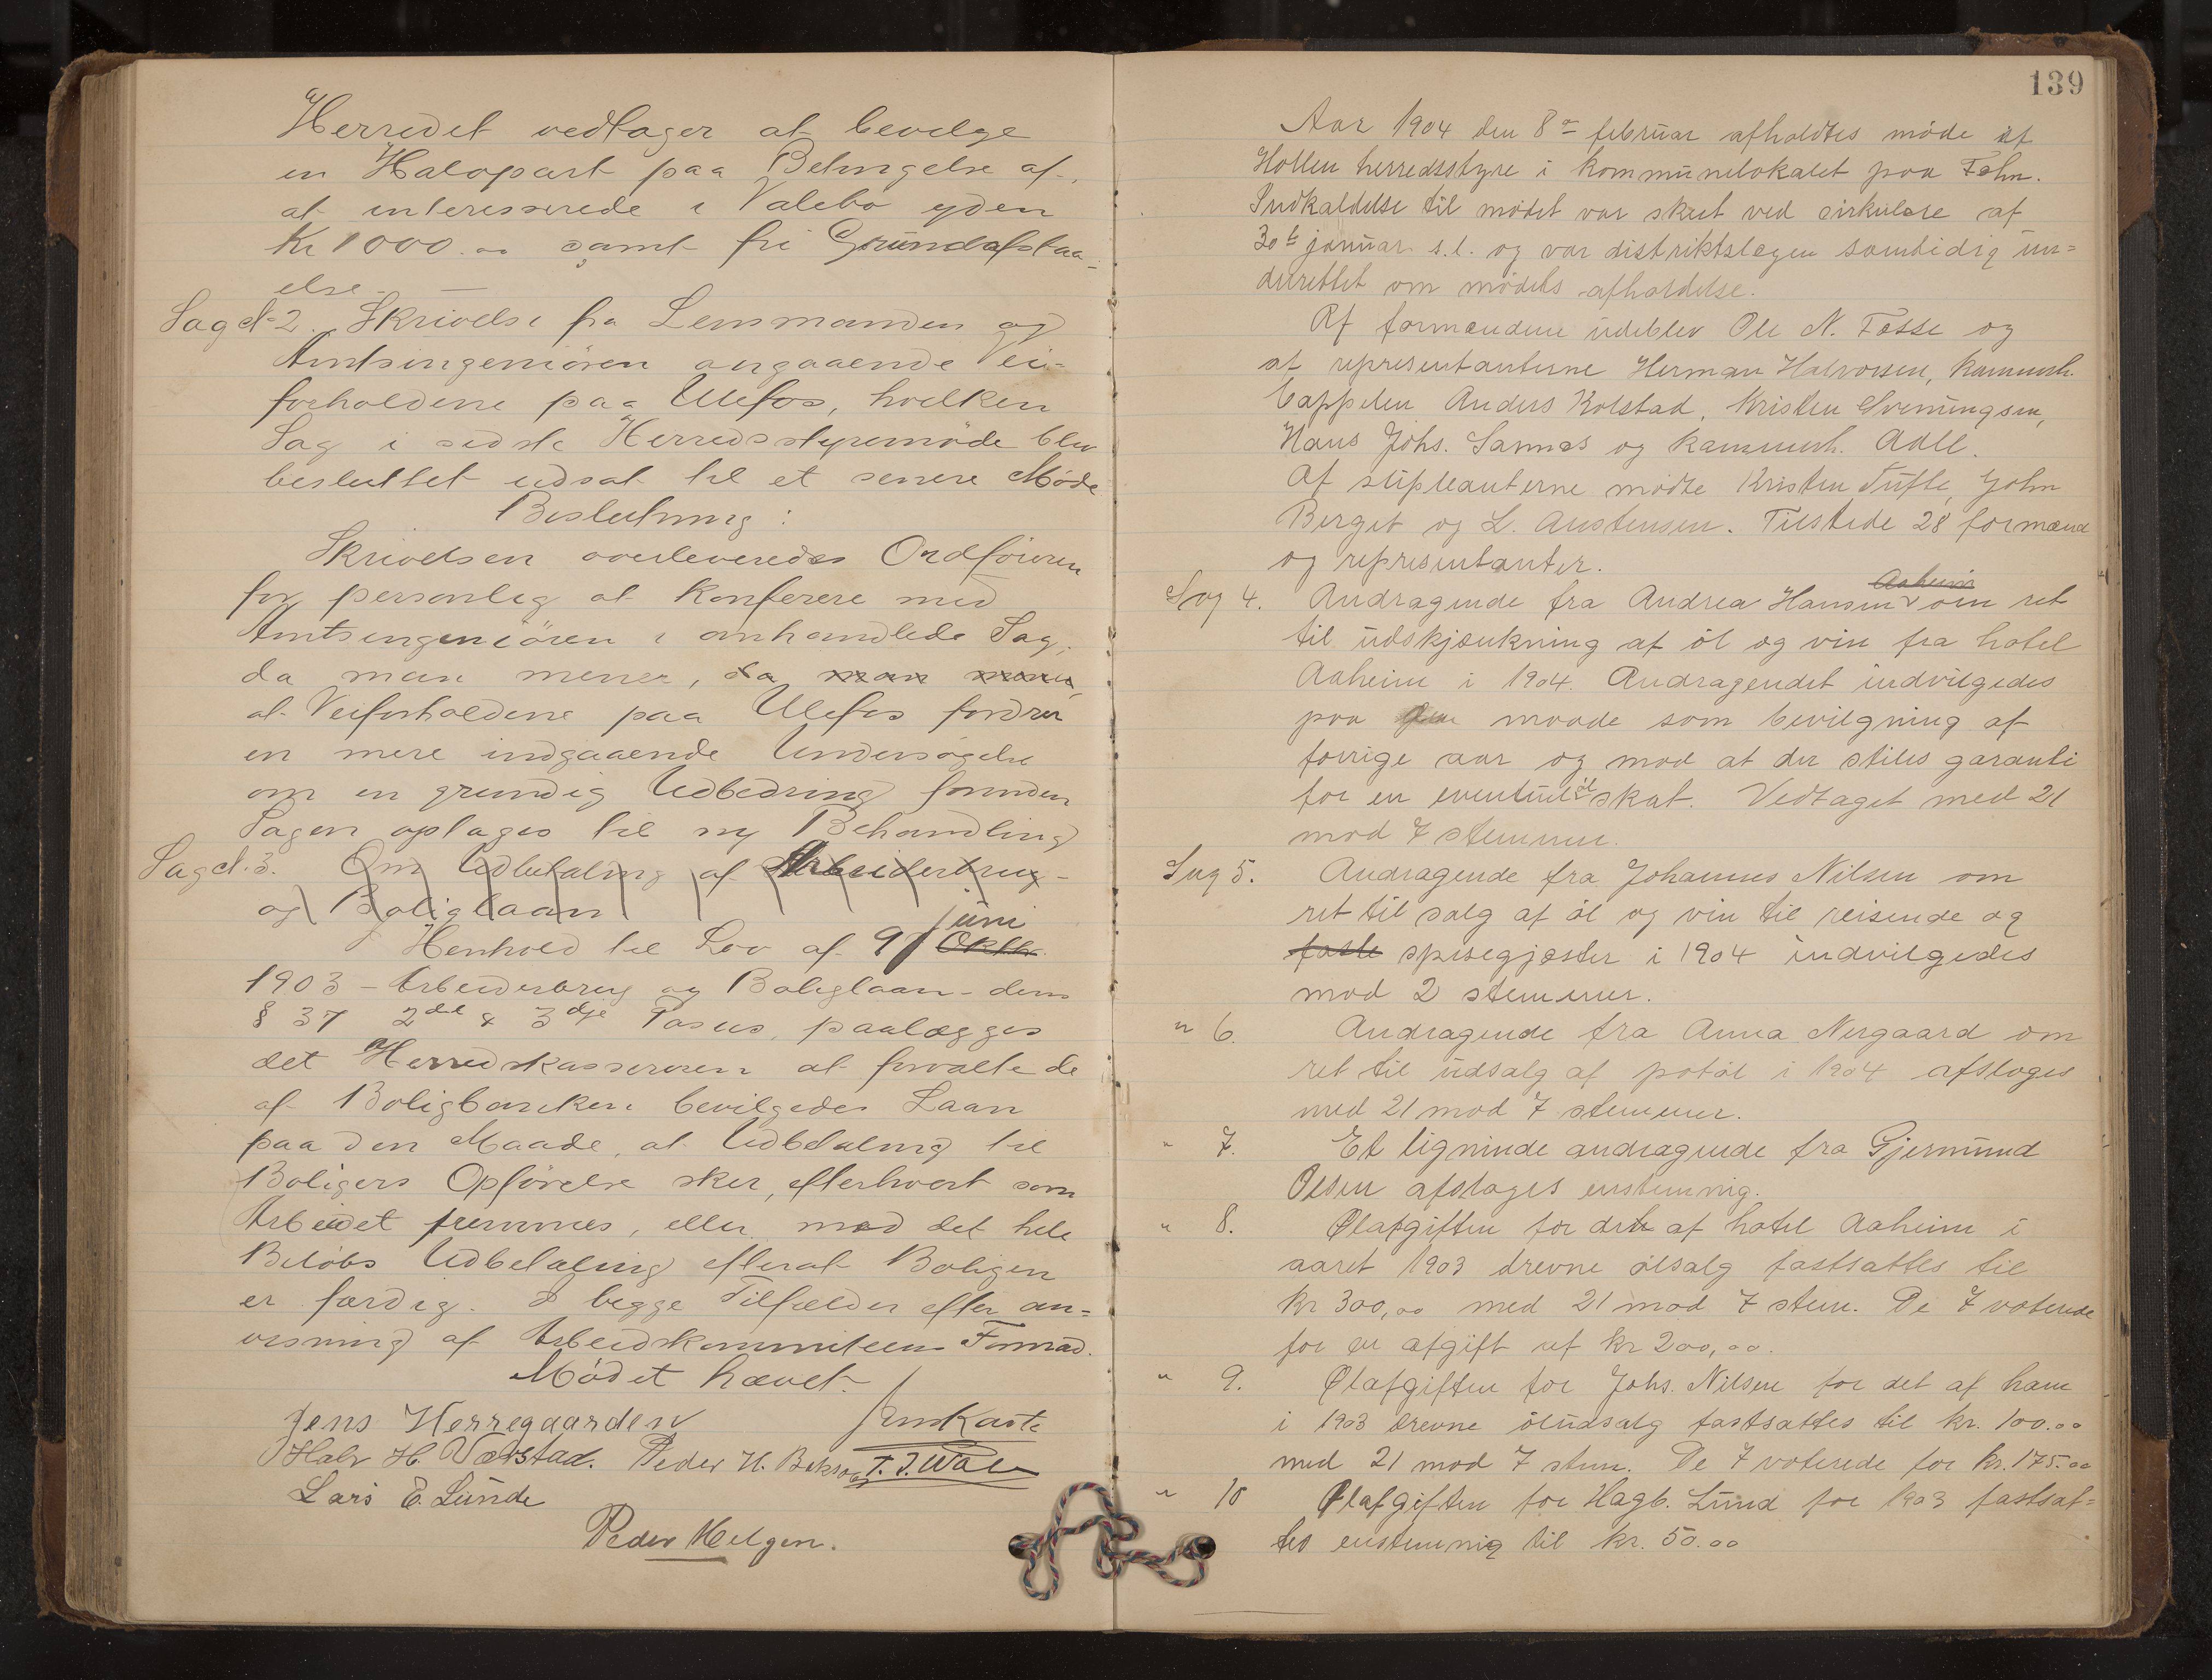 Herredet vedtager at bevilge
en Halvpart paa Betingelse af
at interesserede i Valebo yder
Kr 1000.00 samt fri Grundafstaa-
else
Sag N. 2. Skrivelse fra Lensmanden og
Amtsingeniören angaaende Vei-
forholdene paa Ulefos, hvilken
Sag i sidste Herredsstyremöde blev
besluttet udsat til et senere Möde
Beslutning:
Skrivelsen overleveredes Ordföreren
for personlig at Konferere med
Amtsingeniören i omhandlede Sag,
da man mener, da man mener,
at Veiforholdene paa Ulefos fordrer
en mere indgaaende Undersögelse
om en grundig Udbedring forinden
Sagen optages til ny Behandling
Sag N. 3. Om Udbetaling af Arbeiderbrug-
og Boliglaan
juni
Henhold til Lov af 9/ Oktbr.
1903 - Arbeiderbrug og Boliglaan- dens
§ 37 2det & 3dje Passus, paalægges
det Herredskassereren at forvalte de
af Boligbanken bevilgede Laan
paa den Maade, at Udbetaling til
Boligers Opförelse sker, efterhvert som
Arbeidet fremmes, eller med det hele
Belöbs Udbetaling efterat Boligen
er færdig. I begge Tilfælder efter an=
visning af Arbeidskommiteens Formad.
Mödet hævet.
Jens Herregaarden Jens Kaasa
Halv H. Værstad. Peder H. T. J. Wale
Lars E. Lunde
Peder Helgen.
139
Aar 1904 den 8de februar afholdtes möde af
Hollen herredsstyre i kommunelokalet paa Fehn.
Indkaldelse til mödet var skret ved cirkulære af
30te januar s.l. og var distriktslægen samtidig un=
derrettet om mödets afholdelse.
Af formændene udeblev Ole N. Fosse og
af representanterne Herman Halvorsen, kammerh.
Cappelen Anders Kolstad, Kristen Svenungsen,
Hans Johs. Sannes og kammerh. Aall.
Af supleanterne mödte Kristen Tufte, John
Berget og L. Austensen. Tilstede 28 formænd
og representanter.
Aaheim
Sag 4. Andragende fra Andrea Hansen v om ret
til udskjænkning af öl og vin fra hotel
Aaheim i 1904. Andragendet indvilgedes
paa den maade som bevilgning af
forrige aar og mod at der stiles garanti
for en eventuel ölskat. Vedtaget med 21
mod 7 stemmer.
Sag 5. Andragende fra Johannes Nilsen om
ret til salg af öl og vin til reisende og
faste spisegjæster i 1904 indvilgedes
mod 2 stemmer.
" 6. Andragende fra Anna Nergaard om
ret til udsalg af potöl i 1904 afsloges
med 21 mod 7 stemmer.
" 7. Et lignende andragende fra Gjermund
Olsen afsloges enstemmig.
" 8. Ølafgiften for det af hotel Aaheim i
aaret 1903 drevne ölsalg fastsattes til
kr 300,00 med 21 mod 7 stem. De 7 voterede
for en afgift af kr 200,00.
" 9. Ølafgiften for Johs. Nilsen for det af ham
i 1903 drevne öludsalg fastsattes til kr. 100.00
med 21 mod 7 stem. De 7 voterede for kr. 175.00
" 10 Ølafgiften for Hagb. Lund for 1903 fastsat=
tes enstemmig til kr. 50.00